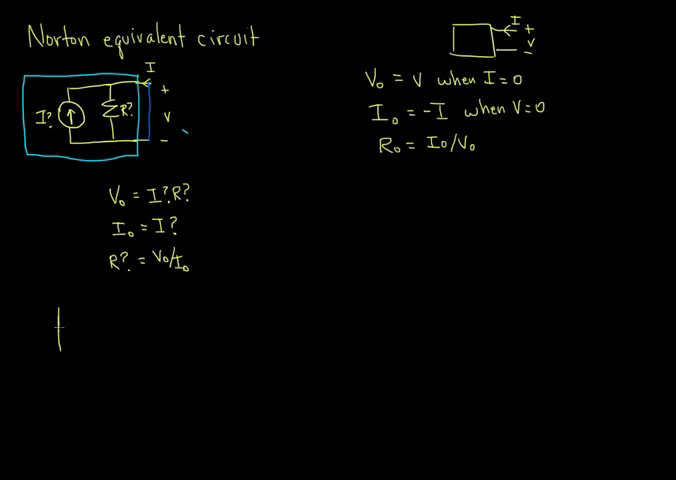 Norton equivalent circuit
I
I?
R?
+
V
-
V₀ = I?R?
I₀ = I?
R? = V₀/I₀
I
+
V
-
V₀ = V when I=0
I₀ = -I when V=0
R₀ = I₀/V₀